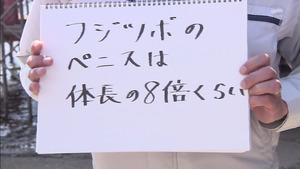 フジツボの
ペニスは
体長の8倍くらい